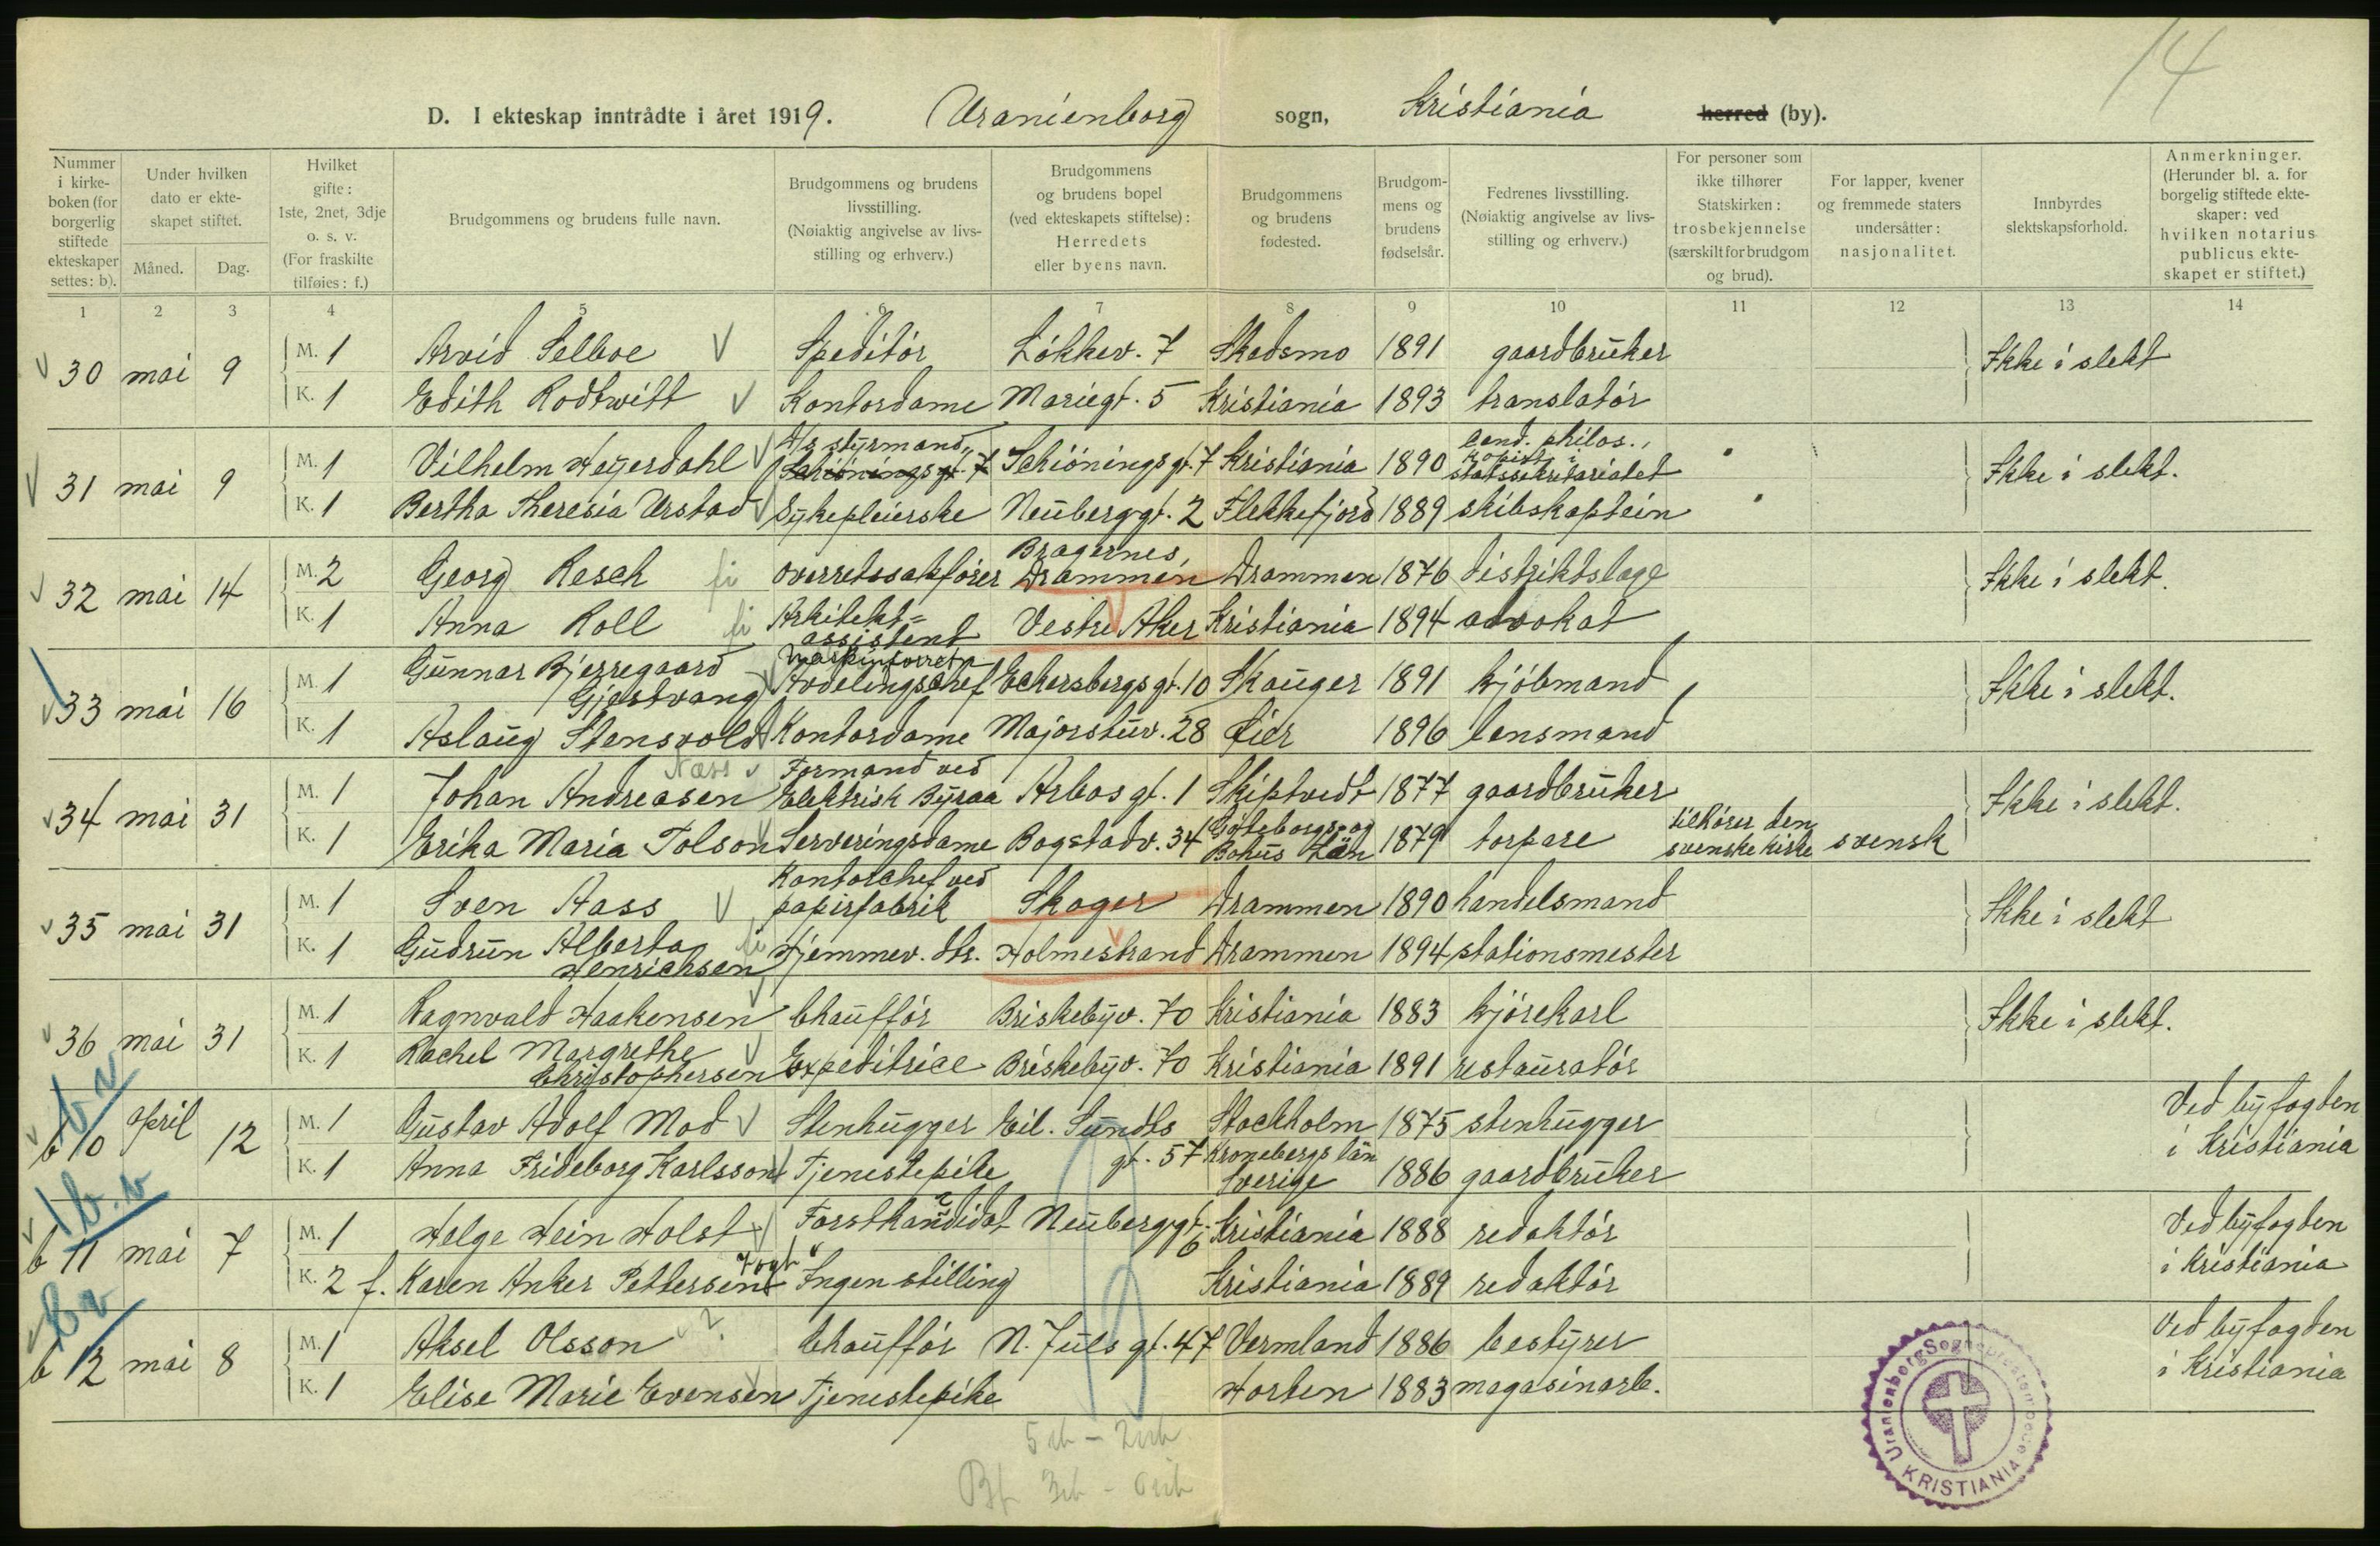 14
D. I ekteskap inntrådte i året 1919. Uranienborg sogn, Kristiania herred (by).
Nummer i kirke-boken (for borgerlig stiftede ekteskaper settes: b).
Under hvilken dato er ekte-skapet stiftet.
Måned. Dag.
Hvilket gifte: 1ste, 2net, 3dje o. s. v. (For fraskilte tilføies: f.)
Brudgommens og brudens fulle navn.
Brudgommens og brudens livsstilling. (Nøiaktig angivelse av livs-stilling og erhverv.)
Brudgommens og brudens bopel (ved ekteskapets stiftelse): Herredets eller byens navn.
Brudgommens og brudens fødested.
Brudgom-mens og brudens fødselsår.
Fedrenes livsstilling. (Nøiaktig angivelse av livs-stilling og erhverv.)
For personer som ikke tilhører Statskirken: trosbekjennelse (særskilt for brudgom og brud).
For lapper, kvener og fremmede staters undersåtter: nasjonalitet.
Innbyrdes slektskapsforhold.
Anmerkninger. (Herunder bl. a. for borgelig stiftede ekte-skaper: ved hvilken notarius publicus ekte-skapet er stiftet.)
1 2 3 4 5 6 7 8 9 10 11 12 13 14
30 mai 9 M. 1 Arvid Selboe Speditór Lókkev. 7 Skedsmo 1891 gaardbruker Ikke i slekt
K. 1 Edith Rodtwitt Kontordame Mariegt. 5 Kristiania 1893 translatór
31 mai 9 M. 1 Vilhelm Heyerdahl styrmand, Schiöningsgt. 7 Schiöningsgt. 7 Kristiania 1890 cand. philos., kopist i statssekretariatet Ikke i slekt.
K. 1 Bertha Theresia Urstad Sykepleierske Neuberggt. 2 Flekkefjord 1889 skibskaptein
32 mai 14 M. 2 Georg Resch overretssakfórer Bragernes, Drammen Drammen 1876 distriktslæge Ikke i slekt.
K. 1 Anna Roll Arkitekt=assistent Vestre Aker Kristiania 1894 advokat
33 mai 16 M. 1 Gunnar Bjerregaard Gjestvang Maskinforretn. Avdelingschef Eckersbergsgt. 10 Skauger 1891 kjóbmand Ikke i slekt.
K. 1 Aslaug Stensvold Kontordame Majorstuv. 28 Lier 1896 lensmand
34 mai 31 M. 1 Johan Andreasen Næss Formand ved Elektrisk Byraa Arbosgt. 1 Skiptvedt 1877 gaardbruker Ikke i slekt.
K. 1 Erika Maria Tolson Serveringsdame Bogstadv. 34 Göteborgs og Bohus Län 1879 torpare tilhórer den svenske kirke svensk
35 mai 31 M. 1 Sven Aass Kontorchef ved papirfabrik Skoger Drammen 1890 handelsmand Ikke i slekt
K. 1 Gudrun Alberta Henrichsen Hjemmev. dtr. Holmestrand Drammen 1894 stationsmester
36 mai 31 M. 1 Ragnvald Haakensen Chauffór Briskebyv. 70 Kristiania 1883 kjórekarl Ikke i slekt.
K. 1 Rachel Margrethe Christophersen Expeditrice Briskebyv. 70 Kristiania 1891 restauratór
b 10 april 12 M. 1 Gustav Adolf Mod Stenhugger Eil. Sundts gt. 57 Stockholm 1875 stenhugger Ved byfogden i Kristiania
K. 1 Anna Frideborg Karlsson Tjenestepike Kronebergs län Sverige 1886 gaardbruker
b 11 mai 7 M. 1 Helge Hein Holst Forstkandidat Neuberggt. 6 Kristiania 1888 redaktór Ved byfogden i Kristiania
K. 2 f. Karen Anker Pettersen Vogt Ingen stilling Kristiania 1889 redaktór
b 12 mai 8 M. 1 Aksel Olsson ? Chauffór N. Juels gt. 47 Vermland 1886 bestyrer Ved byfogden i Kristiania
K. 1 Elise Marie Evensen Tjenestepike Horten 1883 magasinarb.
Uranienborg Sogneprestembede KRISTIANIA